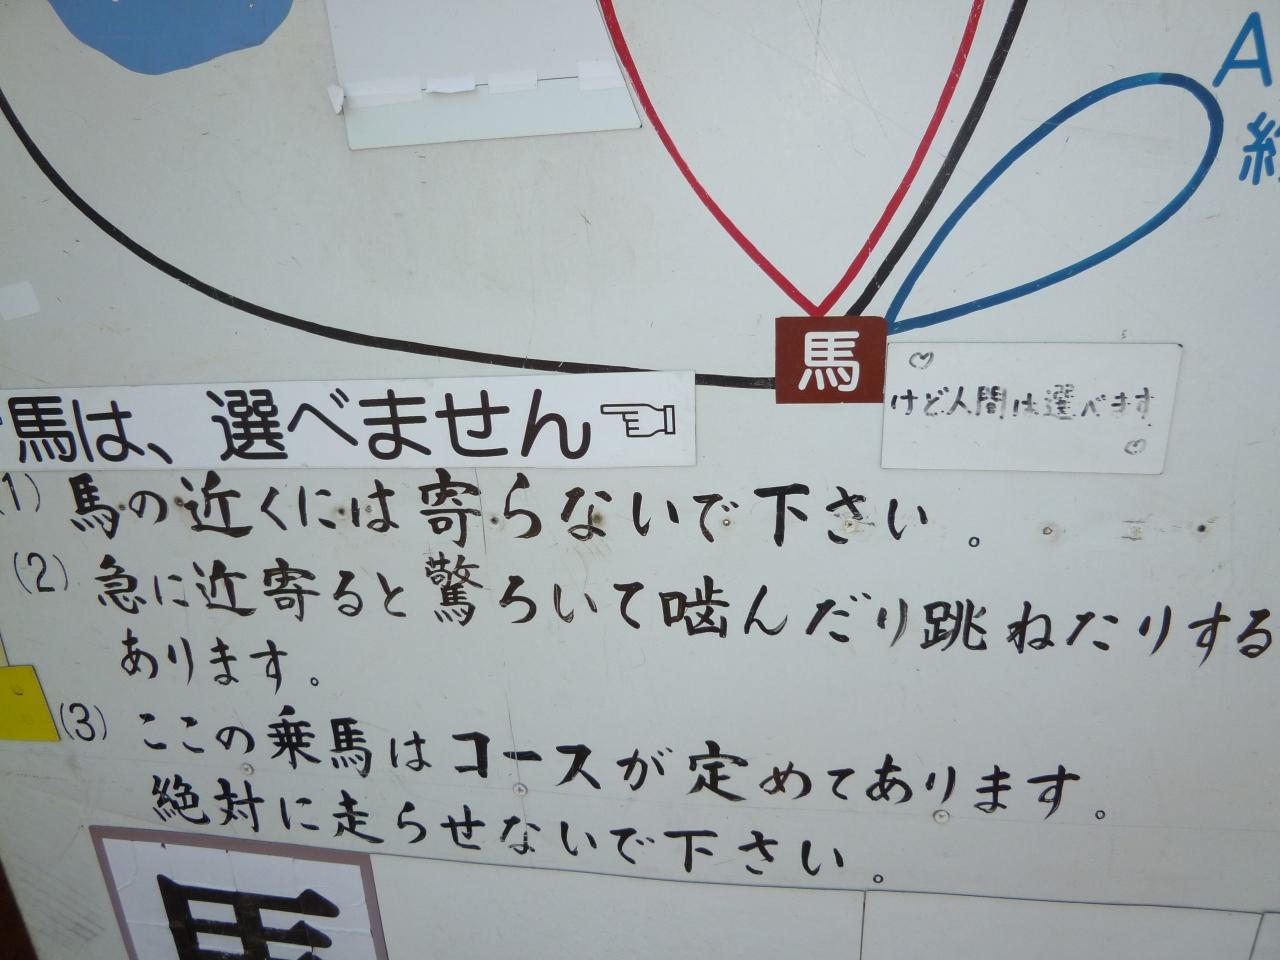 A
馬
けど人間は選べます
馬は、選べません
(1) 馬の近くには寄らないで下さい。
(2) 急に近寄ると驚ろいて噛んだり跳ねたりする
あります。
(3) ここの乗馬はコースが定めてあります。
絶対に走らせないで下さい。